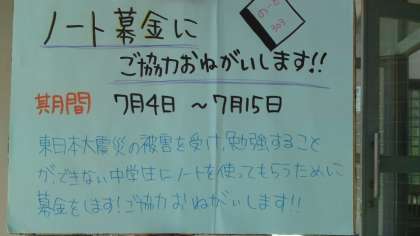 ノート募金に
ご協力おねがいします!!
期間 7月4日 ~7月15日
東日本大震災の被害を受け、勉強すること
ができない中学生にノートを使ってもらうために
募金をします!ご協力おねがいします!!